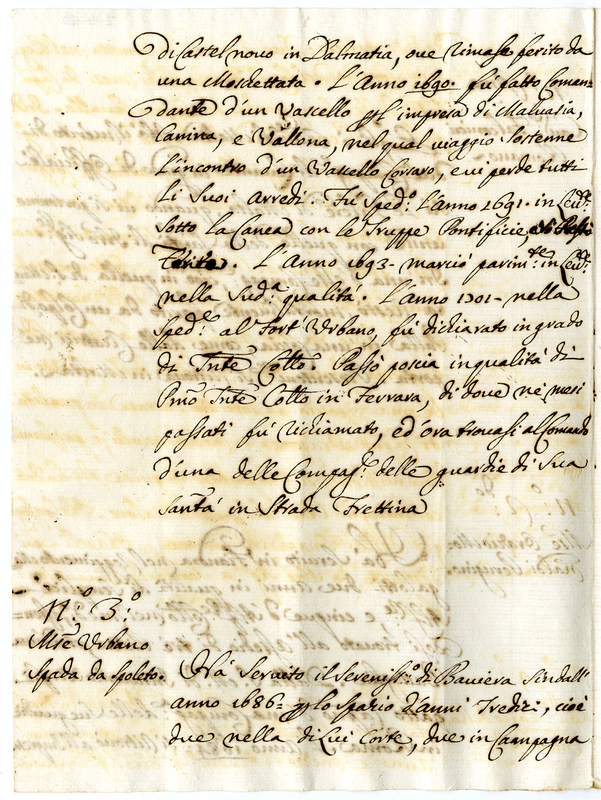 di Castel novo in Dalmatia, ove rimase ferito da
una Moschettata. L'Anno 1690. fù fatto Coman=
dante d'un Vascello p l'impresa di Malvasia,
Canina, e Vallona, nel qual viaggio sostenne
l'incontro d'un Vascello Corsaro, e vi perde tutti
li suoi arredi. Fù sped.º l'Anno 1691. in Lev.te
sotto la Canea con le Truppe Pontificie,
L'Anno 1693- marciò parim.te in Lev.te
nella sud.a qualità. L'anno 1701- nella
sped.e al Fort'Urbano, fù dichiarato in grado
di Tnte Collo. Passò poscia in qualità di
Pmo Tnte Collo in Ferrara, di dove ne mesi
passati fù richiamato, ed'ora trovasi al Comando
d'una delle Compag.e delle guardie di Sua
Santà in Strada Frattina
N.º 3.º
Mse Urbano
Spada da Spoleto. Hà servito il Sereniss.º di Baviera sin dall'
anno 1686= p lo spazio d'anni Tredici, cioè
due nella di Lui Corte, due in Campagna